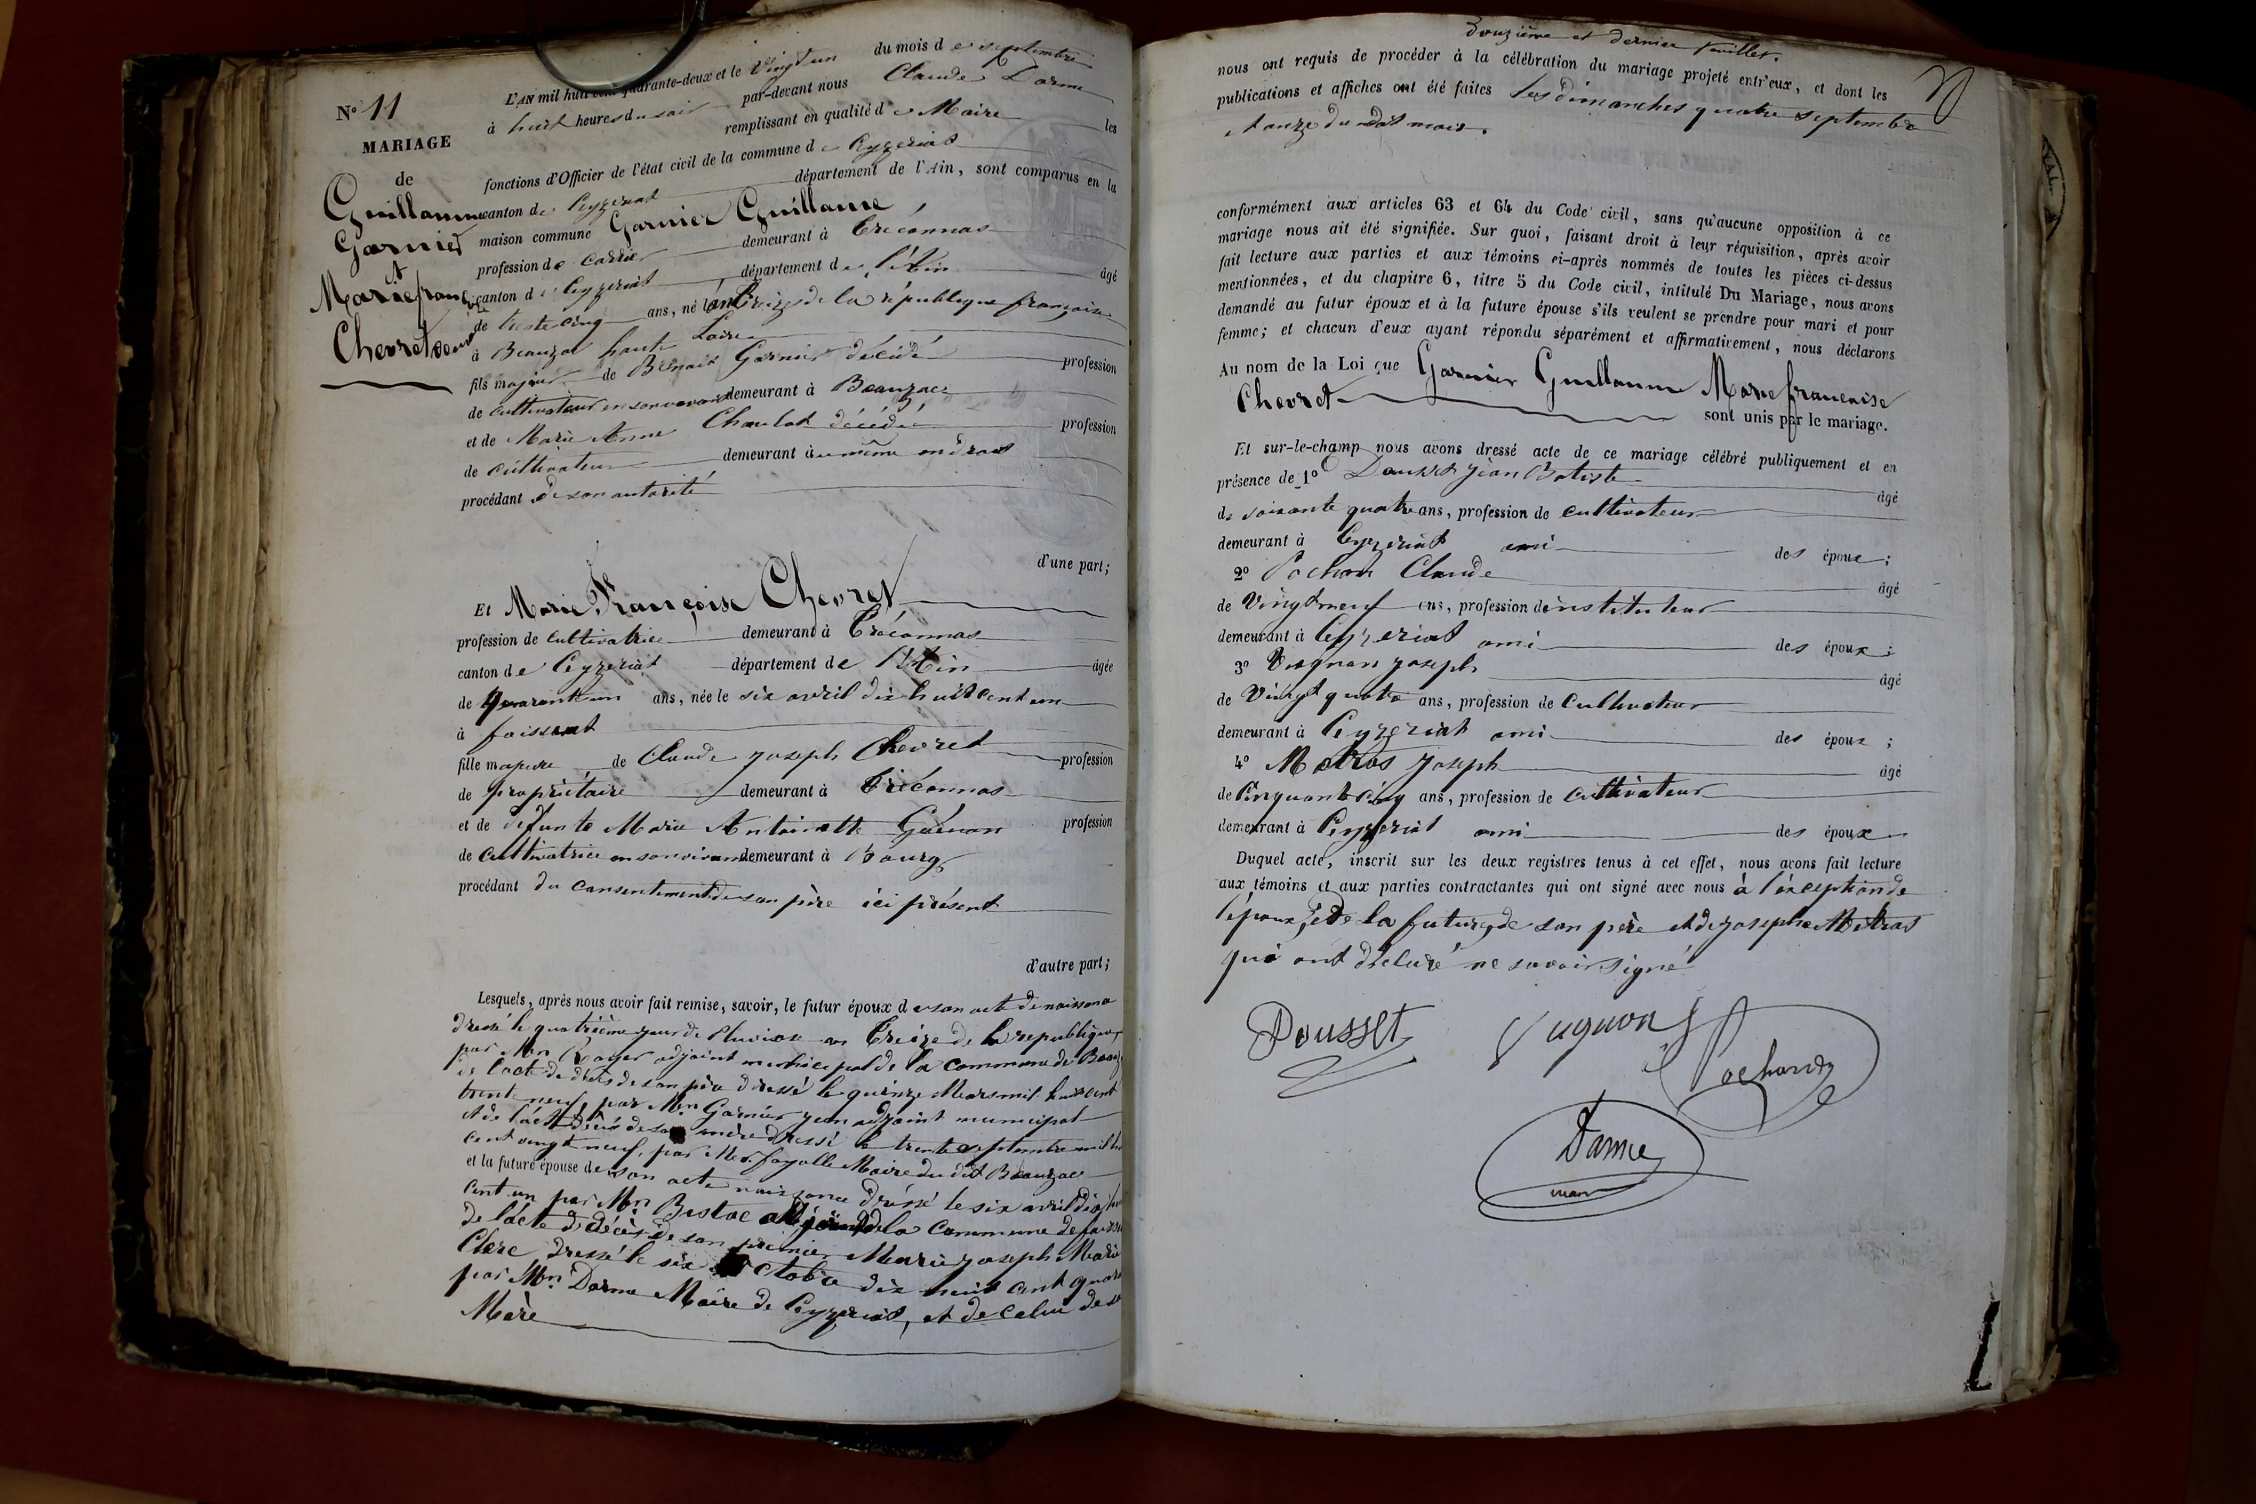 N° 11
MARIAGE
de
Guillaume
Garnier
et
Marie françoise
Chevret veuve
L'AN mil huit cent quarante-deux et le vingt un du mois de septembre
à huit heures du soir par-devant nous Claude Darme
remplissant en qualité de Maire les
fonctions d'Officier de l'état civil de la commune de Ceyzeriat
canton de Ceyzeriat département de l'Ain, sont comparus en la
maison commune Garnier Guillaume
profession de carrier demeurant à Tréconnas
canton de Ceyzeriat département de l'Ain âgé
de trente cinq ans, né l'an treize de la république française
à Beauzac haute Loire
fils majeur de Garnier décédé profession
de cultivateur en son vivant demeurant à Beauzac
et de Marie Anne décédée profession
de cultivateur demeurant à même endroit
procédant de son autorité
d'une part;
Et Marie Françoise Chevret
profession de cultivatrice demeurant à Tréconnas
canton de Ceyzeriat département de l'Ain âgée
de quarante un ans, née le six avril dix huit cent un
à faissent
fille majeure de Claude joseph Chevret profession
de propriétaire demeurant à Tréconnas
et de défunte Marie Antoinette profession
de cultivatrice en son vivant demeurant à Bourg
procédant du consentement de son père ici présent
d'autre part;
Lesquels, après nous avoir fait remise, savoir, le futur époux de son acte de naissance
dressé le quatrième jour de Pluviose an treize de la république,
par Mr. Royer adjoint municipal de la commune de
de l'acte de décès de son père dressé le quinze Mars mil huit cent
trente neuf, par Mr. Garnier jean adjoint municipal
et de l'acte décès de sa mère dressé le trente septembre mil
cent vingt neuf, par Mr. fayolle Maire du dit Beauzac
et la future épouse de son acte naissance dressé le six avril dix
cent un par Mr. adjoint de la commune de
de l'acte de décès de son premier Marie joseph Marie
Clerc dressé le six octobre dix huit cent
par Mr. Darme Maire de Ceyzeriat, et de celui de
Mère
Douzième et dernier feuillet.
nous ont requis de procéder à la célébration du mariage projeté entr'eux, et dont les
publications et affiches ont été faites les dimanches quatre septembre
et onze du dit mois.
conformément aux articles 63 et 64 du Code civil, sans qu'aucune opposition à ce
mariage nous ait été signifiée. Sur quoi, faisant droit à leur réquisition, après avoir
fait lecture aux parties et aux témoins ci-après nommés de toutes les pièces ci-dessus
mentionnées, et du chapitre 6, titre 5 du Code civil, intitulé Du Mariage, nous avons
demandé au futur époux et à la future épouse s'ils veulent se prendre pour mari et pour
femme; et chacun d'eux ayant répondu séparément et affirmativement, nous déclarons
Au nom de la Loi que Garnier Guillaume Marie francoise
Chevret sont unis par le mariage.
Et sur-le-champ nous avons dressé acte de ce mariage célébré publiquement et en
présence de 1° Dousset jean Batiste âgé
de soixante quatre ans, profession de cultivateur
demeurant à Ceyzeriat ami des époux;
2° Pochon Claude âgé
de vingt neuf ans, profession de instituteur
demeurant à Ceyzeriat ami des époux;
3° Vugnon joseph âgé
de vingt quatre ans, profession de cultivateur
demeurant à Ceyzeriat ami des époux;
4° Metras joseph âgé
de cinquante cinq ans, profession de cultivateur
demeurant à Ceyzeriat ami des époux
Duquel acte, inscrit sur les deux registres tenus à cet effet, nous avons fait lecture
aux témoins et aux parties contractantes qui ont signé avec nous à l'exception de
l'époux, et de la future, de son père et de joseph Metras
qui ont déclaré ne savoir signé
Dousset
Vugnon
Pochon
Darme
maire